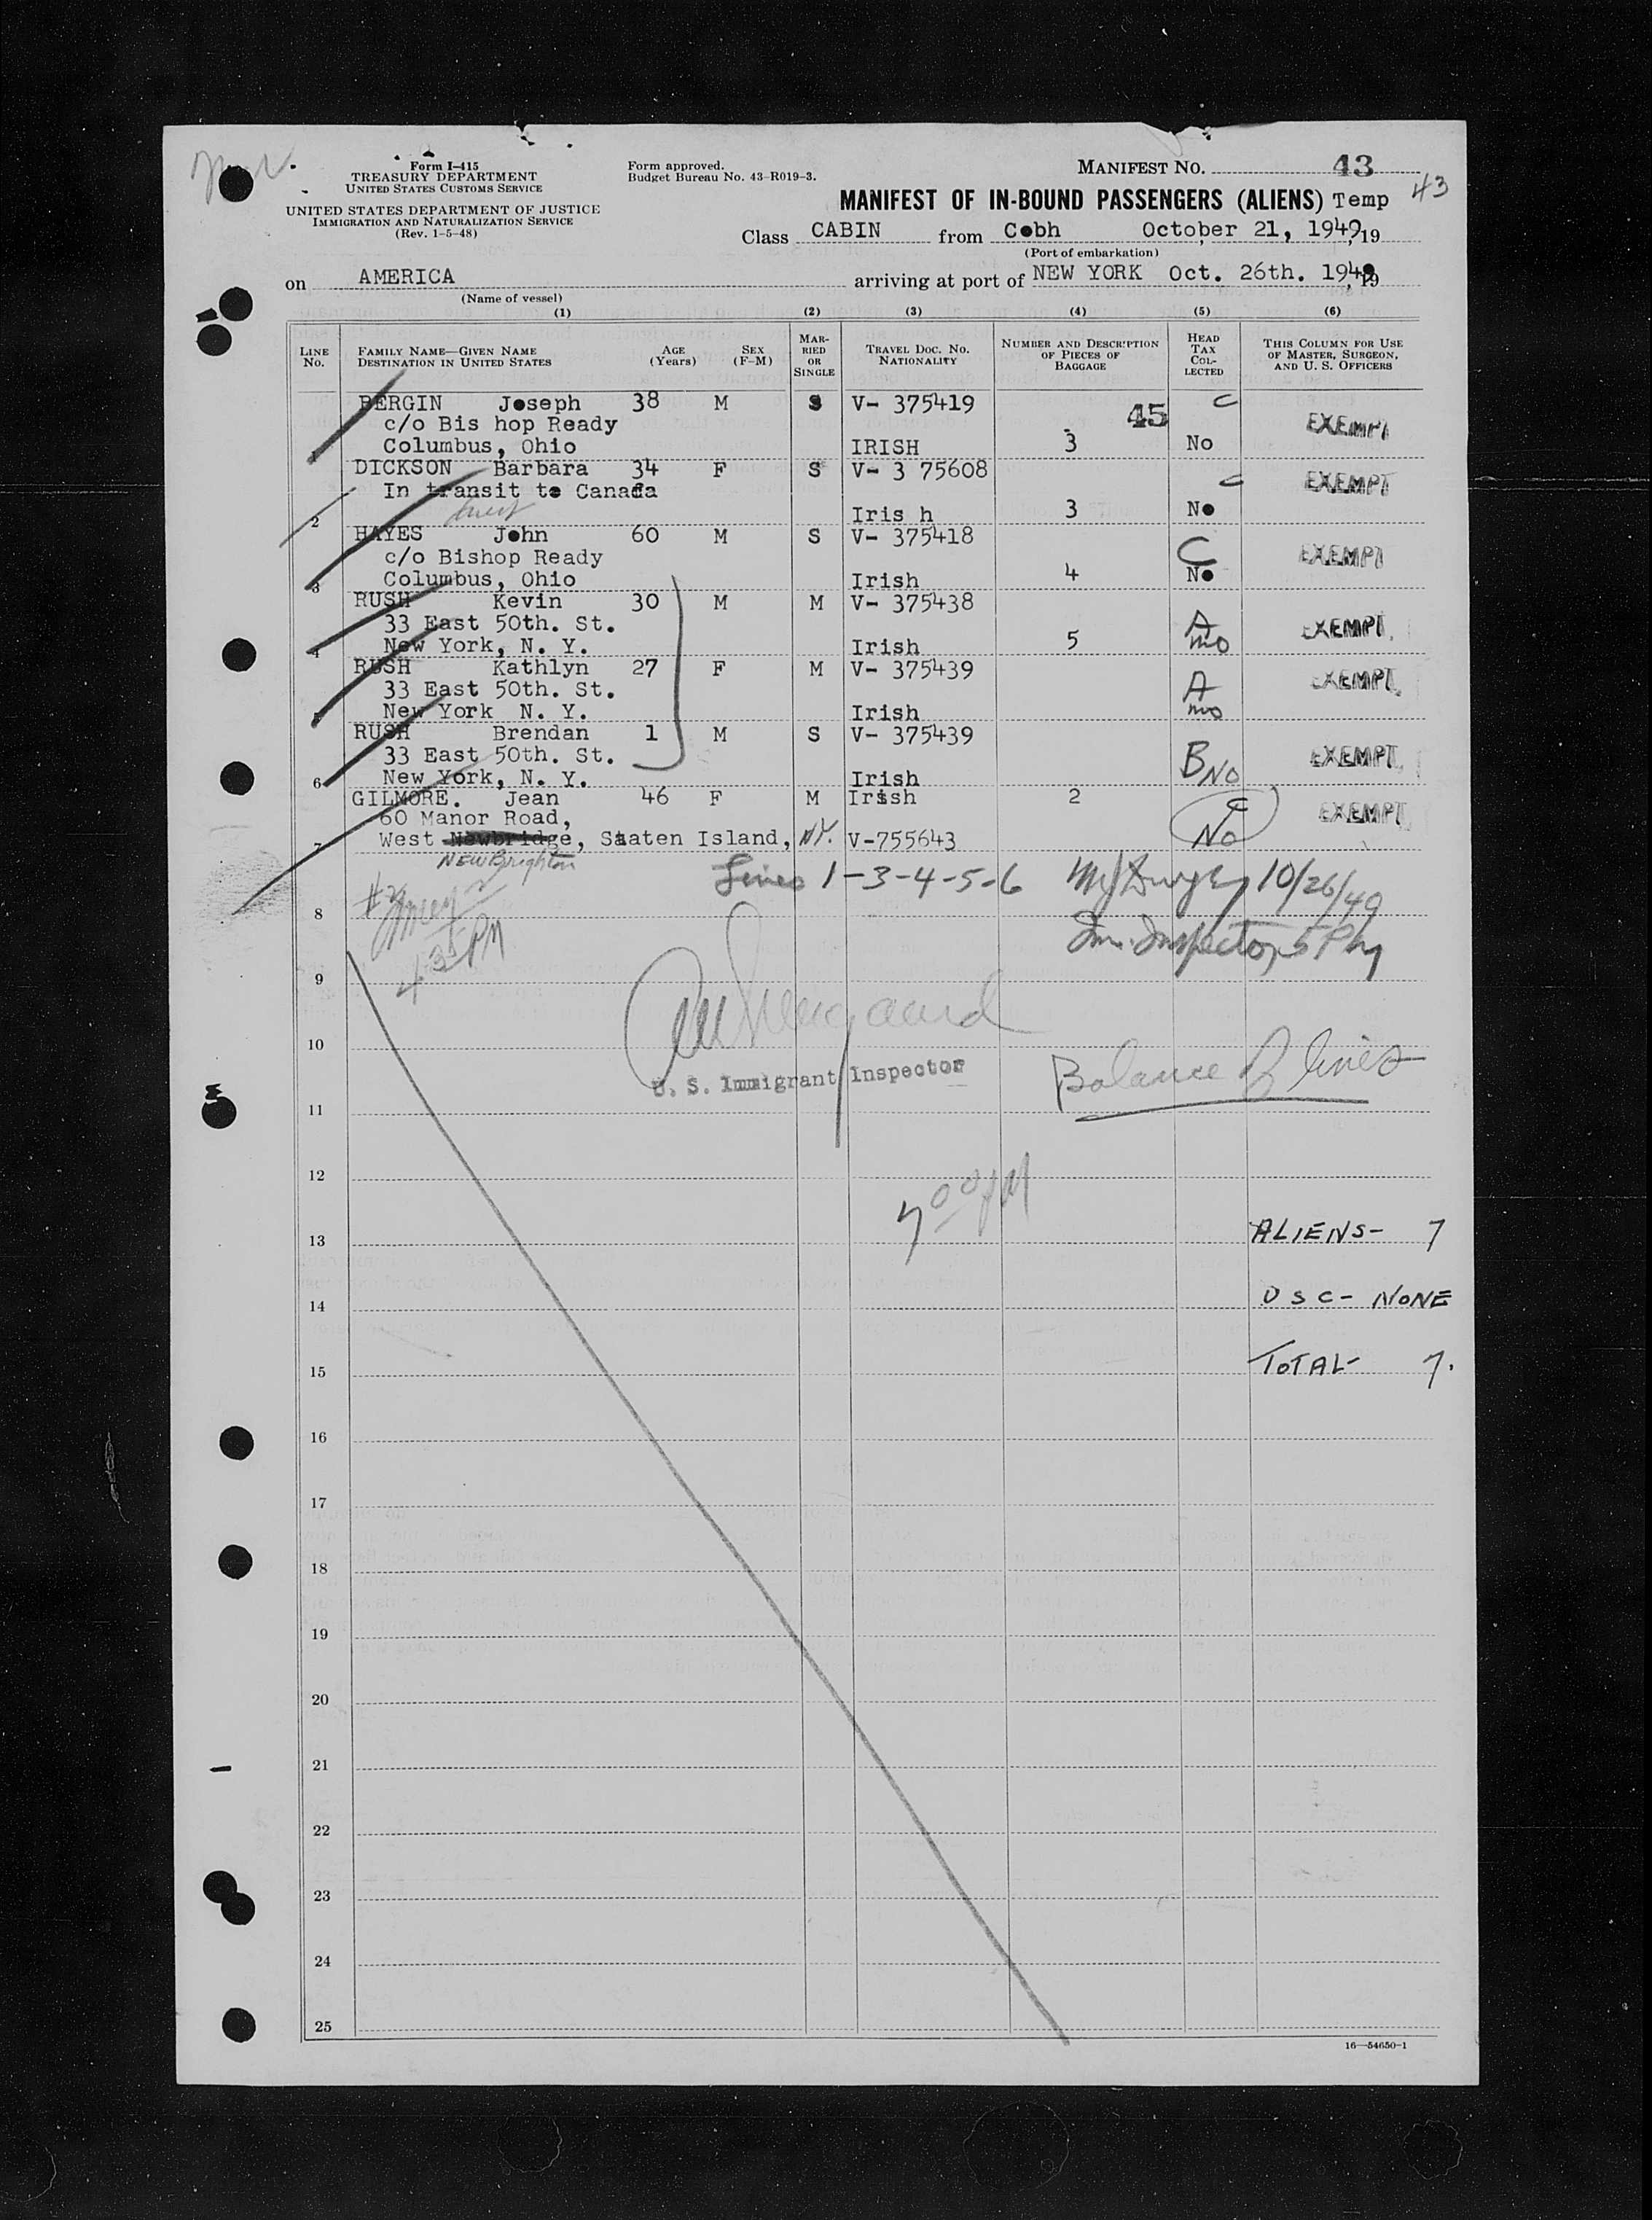 Form I-415
TREASURY DEPARTMENT
UNITED STATES CUSTOMS SERVICE
UNITED STATES DEPARTMENT OF JUSTICE
IMMIGRATION AND NATURALIZATION SERVICE
(Rev. 1-5-48)
Form approved.
Budget Bureau No. 43-R019-3.
MANIFEST NO. 43
MANIFEST OF IN-BOUND PASSENGERS (ALIENS) Temp 43
Class CABIN from Cobh October 21, 1949, 19
(Port of embarkation)
on AMERICA arriving at port of NEW YORK Oct. 26th. 1949, 19
(Name of vessel)
(1) (2) (3) (4) (5) (6)
LINE No. FAMILY NAME—GIVEN NAME DESTINATION IN UNITED STATES AGE (Years) SEX (F-M) MARRIED OR SINGLE TRAVEL DOC. NO. NATIONALITY NUMBER AND DESCRIPTION OF PIECES OF BAGGAGE HEAD TAX COLLECTED THIS COLUMN FOR USE OF MASTER, SURGEON, AND U. S. OFFICERS
BERGIN Joseph 38 M S V- 375419 45 C
c/o Bis hop Ready EXEMPT
1 Columbus, Ohio IRISH 3 No
DICKSON Barbara 34 F S V- 3 75608 C EXEMPT
In transit to Canada
2 Iris h 3 No
HAYES John 60 M S V- 375418
c/o Bishop Ready C EXEMPT
3 Columbus, Ohio Irish 4 No
RUSH Kevin 30 M M V- 375438
33 East 50th. St. A EXEMPT
4 New York, N. Y. Irish 5 no
RUSH Kathlyn 27 F M V- 375439
33 East 50th. St. A EXEMPT
5 New York N. Y. Irish no
RUSH Brendan 1 M S V- 375439
33 East 50th. St. B EXEMPT
6 New York, N. Y. Irish NO
GILMORE. Jean 46 F M Irish 2 C EXEMPT
60 Manor Road,
7 West Newbridge, Staaten Island, N.Y. V-755643 No
NEW Brighton
Lines 1-3-4-5-6 10/26/49
8 #2
Imm. Inspector 5 PM
4 35 PM
9
10
U. S. Immigrant Inspector
Balance of lines
11
12
7 00 PM
13 ALIENS- 7
14 USC- NONE
15 TOTAL- 7.
16
17
18
19
20
21
22
23
24
25
16—54650-1